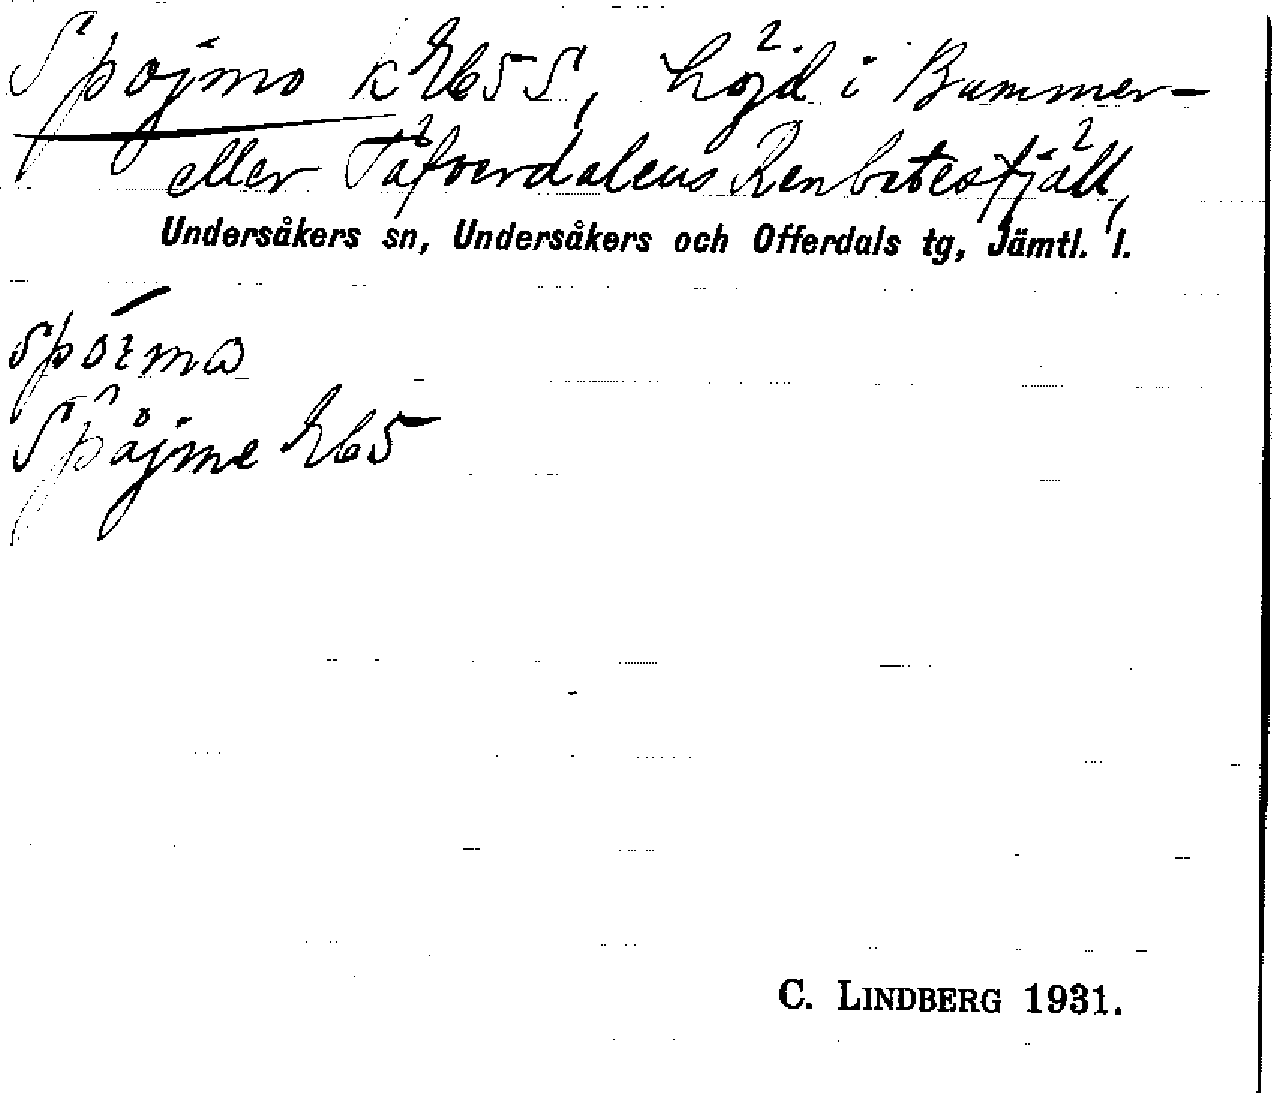 Spojmo k Eb5 S, höjd i Bummer-
eller Täfverdalens Renbetesfjäll,
Undersåkers sn, Undersåkers och Offerdals tg, Jämtl. l.
Spåjme Eb5
C. LINDBERG 1931.